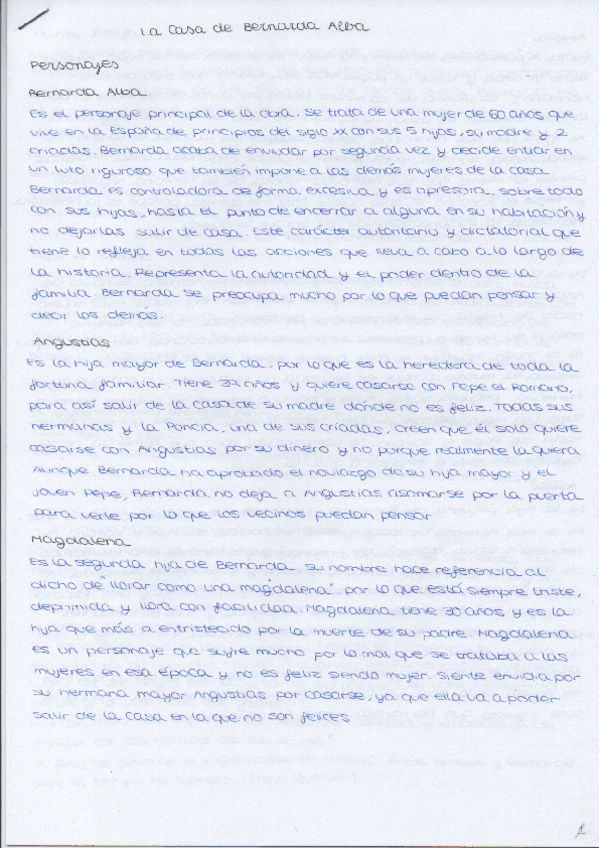 La Casa de Bernarda Alba
Personajes
Bernarda Alba
Es el personaje principal de la obra. Se trata de una mujer de 60 años que
vive en la España de principios del siglo XX con sus 5 hijas, su madre y 2
criadas. Bernarda acaba de enviudar por segunda vez y decide entrar en
un luto riguroso que también impone a las demás mujeres de la casa.
Bernarda es controladora de forma excesiva y es opresora, sobre todo
con sus hijas, hasta el punto de encerrar a alguna en su habitación y
no dejarlas salir de casa. Este carácter autoritario y dictatorial que
tiene lo refleja en todas las acciones que lleva a cabo a lo largo de
la historia. Representa la autoridad y el poder dentro de la
familia. Bernarda se preocupa mucho por lo que puedan pensar y
decir los demás.
Angustias
Es la hija mayor de Bernarda, por lo que es la heredera de toda la
fortuna familiar. Tiene 39 años y quiere casarse con Pepe el Romano,
para así salir de la casa de su madre donde no es feliz. Todas sus
hermanas y la Poncia, una de sus criadas, creen que él solo quiere
casarse con Angustias por su dinero y no porque realmente la quiera.
Aunque Bernarda ha aprobado el noviazgo de su hija mayor y el
joven Pepe, Bernarda no deja a Angustias asomarse por la puerta
para verle por lo que los vecinos puedan pensar.
Magdalena
Es la segunda hija de Bernarda. Su nombre hace referencia al
dicho de "llorar como una magdalena", por lo que está siempre triste,
deprimida y llora con facilidad. Magdalena tiene 30 años y es la
hija que más a entristecido por la muerte de su padre. Magdalena
es un personaje que sufre mucho por lo mal que se trataba a las
mujeres en esa época y no es feliz siendo mujer. Siente envidia por
su hermana mayor Angustias por casarse, ya que ella va a poder
salir de la casa en la que no son felices